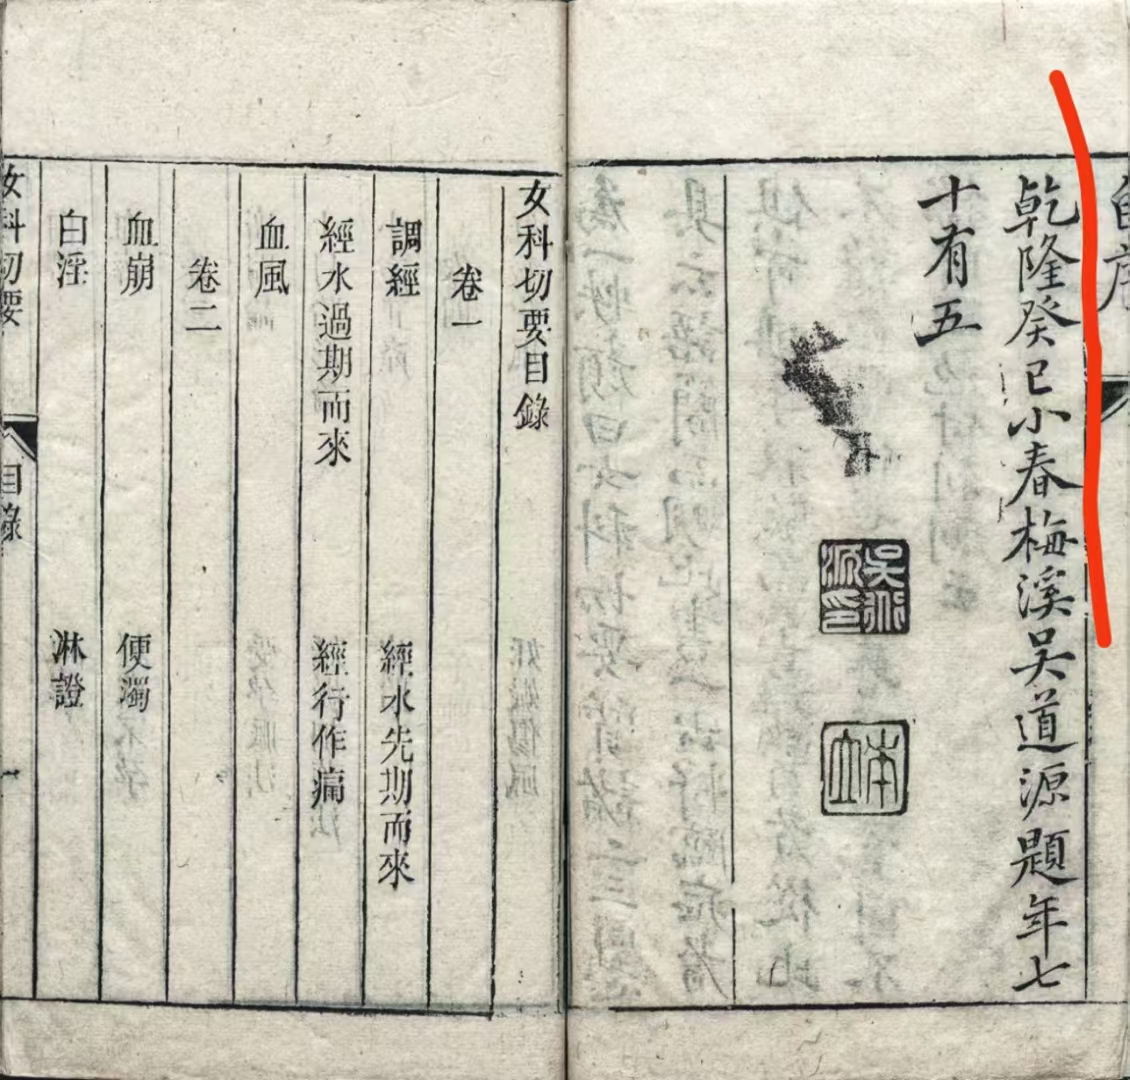 自序
乾隆癸巳小春梅溪吴道源題年七
十有五
吴道源印
本立
女科切要目錄
卷一
調經 經水先期而來
經水過期而來 經行作痛
血風
卷二
血崩 便濁
白淫 淋證
女科切要 目錄 一